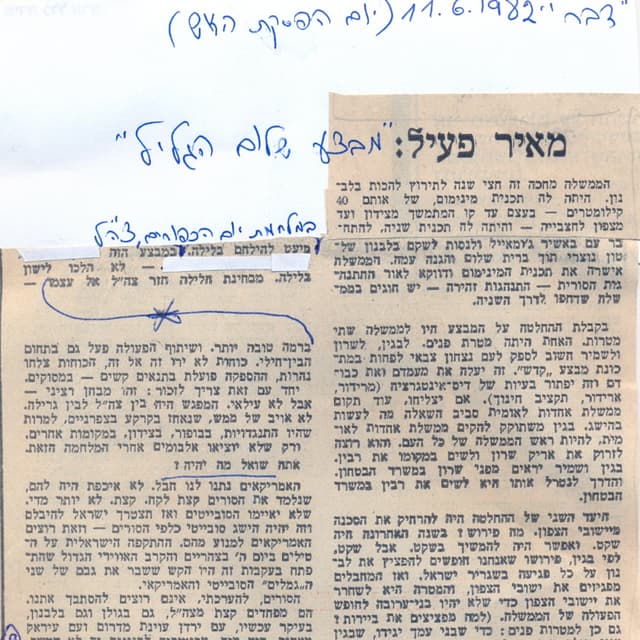 "דבר" 11.6.1982 (יום הפסקת האש)
מאיר פעיל: "מבצע שלום הגליל"
הממשלה מחכה זה חצי שנה לתירוץ להכות בלב־
נון. היתה לה תכנית מינימום, של אותם 40
קילומטרים — בעצם עד קו המתמשך מצידון ועד
צפון לחצבייה — והיתה לה תכנית שניה, לחתח־
עם באשיר ג'ומאייל ולנסות לשקם בלבנון של־
טון נוצרי תוך ברית שלום והגנה עמה. הממשלה
אישרה את תכנית המינימום ודווקא לאור התנהגו־
ת הסורית — התנהגות זהירה — יש חוגים בממ־
שלה שדחפו לדרך השניה.
בקבלת ההחלטה על המבצע היו לממשלה שתי
מטרות. האחת היתה מטרת פנים. לבגין, לשרון
ולשמיר חשוב לספק לעם נצחון צבאי לפחות במת־
כונת מבצע „קדש". זה יעלה את מעמדם ואת כבו־
דם וזה יפתור בעיות של דיס־אינטגרציה (מרידור,
ארידור, תקציב חינוך). אם יצליחו, עוד תקום
ממשלת אחדות לאומית סביב השאלה מה לעשות
בהישג. בגין משתוקק להקים ממשלת אחדות לאו־
מית, להיות ראש הממשלה של כל העם. הוא רוצה
לזרוק את אריק שרון ולשים במקומו את רבין.
בגין ושמיר יראים מפני שרון במשרד הבטחון,
והדרך לנטרל אותו היא לשים את רבין במשרד
הבטחון.
היעד השני של ההחלטה היה להרחיק את הסכנה
מיישובי הצפון. מה פירוש? בשנה האחרונה היה
שקט. ואפשר היה להמשיך בשקט. אבל שקט,
לפי בגין, פירושו שאנחנו חופשים להפציץ את לב־
נון על כל פגיעה בשגריר ישראל. ואז המחבלים
מפגיזים את ישובי הצפון, והמטרה היא לשחרר
את יישובי הצפון כדי שלא יהיו בני־ערובה לחופש
הפעולה של הממשלה. (למה מפציצים את ביירות?
גם כן למטרות פנים: שיו שבני עמך ניגדו, שבגין
במלחמת יום הכפורים, צה"ל
מיעט להילחם בלילה. במבצע הזה
— לא הלכו לישון
בלילה. מבחינת הלילה חזר צה"ל אל עצמו —
ברמה טובה יותר. ושיתוף הפעולה פעל גם בתחום
הבין־חילי. כוחות לא ירו זה אל זה, הכוחות צלחו
נהרות, ההספקה פועלת בתנאים קשים — במסוקים.
יחד עם זאת צריך לזכור: זהו מבחן רציני —
אבל לא עילאי. המפגש היה בין צה"ל לבין גרילה,
לא אויב של ממש, שנאחז בקרקע בצפרניים, למרות
שהיו התנגדויות, בבופור, בצידון, במקומות אחרים.
ורק שלא יוציאו אלבומים אחרי המלחמה הזאת.
אתה שואל מה יהיה?
האמריקאים נתנו לנו חבל. לא איכפת היה להם,
שנלמד את הסורים קצת לקח. קצת. לא יותר מדי.
שלא יאיימו הסובייטים ואז תצטרך ישראל להיבלם
וזה יהיה הישג סובייטי כלפי הסורים — וזאת רוצים
האמריקאים למנוע מהם. ההתקפה הישראלית על ה־
טילים ביום ה' בצהריים והקרב האווירי הגדול שהת־
פתח בעקבות זה היו הקש ששבר את גבם של שני
ה„גמלים" הסובייטי והאמריקאי.
הסורים, להערכתי, אינם רוצים להסתבך אתנו.
הם מפחדים קצת מצה"ל, גם בגולן וגם בלבנון,
בעיקר עכשיו, עם ירדן עוינת מדרום ועם עיראק